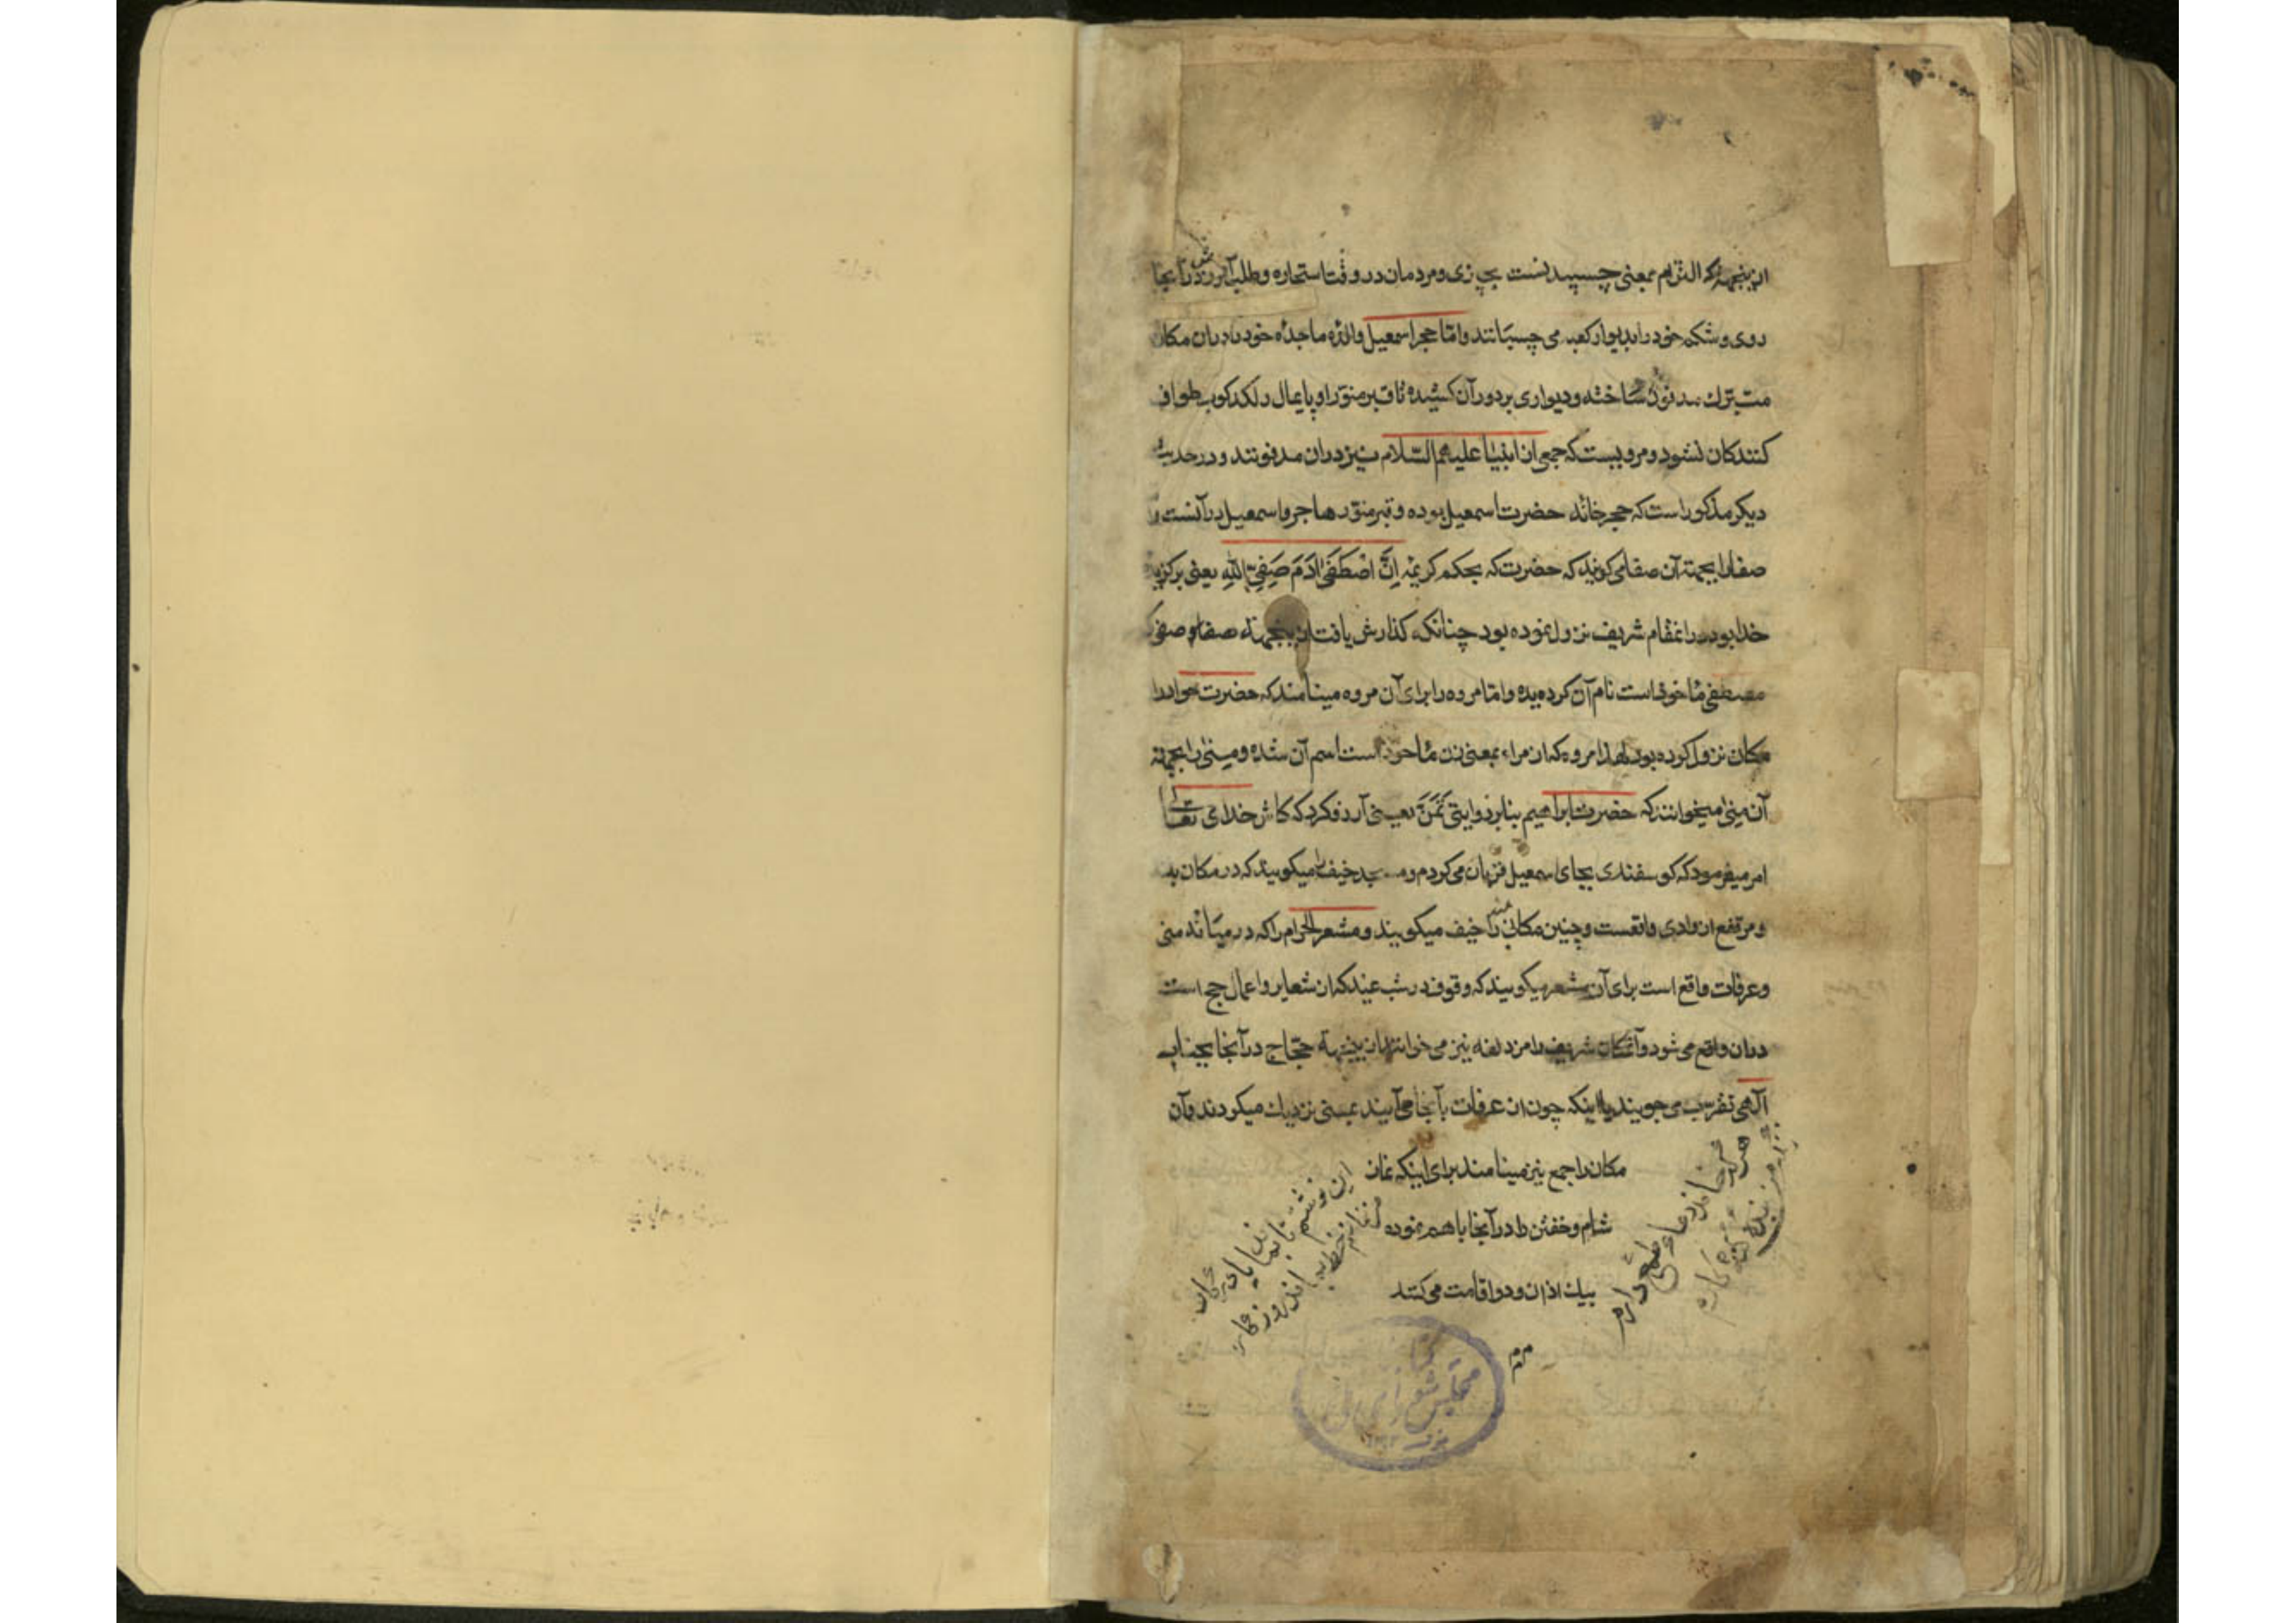 ازینجهة که التزام بمعنی چسپیدنست بچیزی و مردمان در وقت استجاره و طلب در آنجا
روی و شکم خود را بدیوار کعبه می چسپانند و امّا حجر اسمعیل والدهٔ ماجدهٔ خود را در ان مکان
متبرّك مدفون ساخته و دیواری بر دور آن کشیده تا قبر منوّر او پایمال و لکدکوب طواف
کنندکان نشود و مرویست که جمعی از انبیا علیهم السّلام نیز در ان مدفونند و در حدیث
دیکر مذکور است که حجر خانه حضرت اسمعیل بوده و قبر منوّر هاجر و اسمعیل در آنست و
صفا را بجهة آن صفا می کویند که حضرت که بحکم کریمه اِنَّ اصْطَفَی ادَمَ صَفِیّ اللهِ یعنی برکزیده
خدا بود در انمقام شریف نزول نموده بود چنانکه کذارش یافت ازینجهة صفا که
مصطفی ماخوذ است نام آن کردیده و امّا مروه را برای آن مروه مینامند که حضرت حوا در ان
مکان نزول کرده بود لهذا مروه که از مراء بمعنی زن ماخوذ است اسم آن شده و منی را بجهة
آن منی میخوانند که حضرت ابراهیم بنا بر روایتی تَمَنَّ یعنی آرزو کرد که کاش خدای تعالی
امر میفرمود که کوسفندی بجای اسمعیل قربان می کردم و خیف میکویند که در مکان
و مرتفع از وادی واقعست و چنین مکانی را خیف میکویند و مشعر الحرام را که در میانه منی
و عرفات واقع است برای آن مشعر میکویند که وقوف در شب عید که از شعایر و اعمال حج است
در ان واقع می شود و آنمکان شریف را مزدلفه نیز می خوانند ازینجهة حجّاج در آنجا بجناب
آلهی تقرّب می جویند یا اینکه چون از عرفات بآنجا می آیند بمنی نزدیك میکردند و آن
مکان را جمع نیز مینامند برای اینکه نماز
شام و خفتن را در آنجا با هم نموده
بیك اذان و دو اقامت می کنند
هر که خواند دعا طمع دارم
زانکه من بنده کنه کارم
این نوشتم تا بماند یادکار
من نمانم خط بماند روزکار
کتابخانه
مجلس شورای ملی